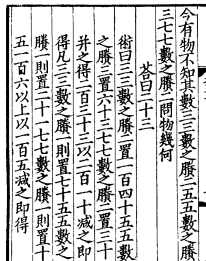 今有物不知其數三三數之賸二五五數之賸
三七七數之賸二問物幾何
答曰二十三
術曰三三數之賸二置一百四十五五數
之賸三置六十三七七數之賸二置三十
并之得二百三十三以二百一十減之即
得凡三三數之賸一則置七十五五數之
賸一則置二十一七七數之賸一則置十
五一百六以上以一百五減之即得